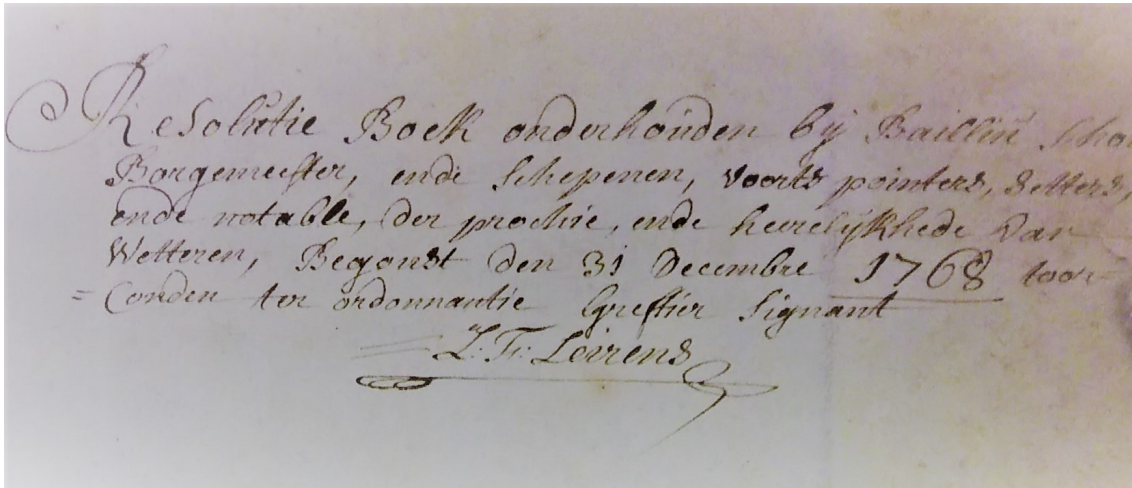 Resolutie Boek onderhouden bij Bailliu Scho
Borgemeester, ende Schepenen, voorts pointers, setters,
ende notable, der prochie, ende heerelijkhede van
Wetteren, Begonst den 31 Decembre 1768 toor=
=Conden ter ordonnantie Greffier Signant
L: Fr: Leirens